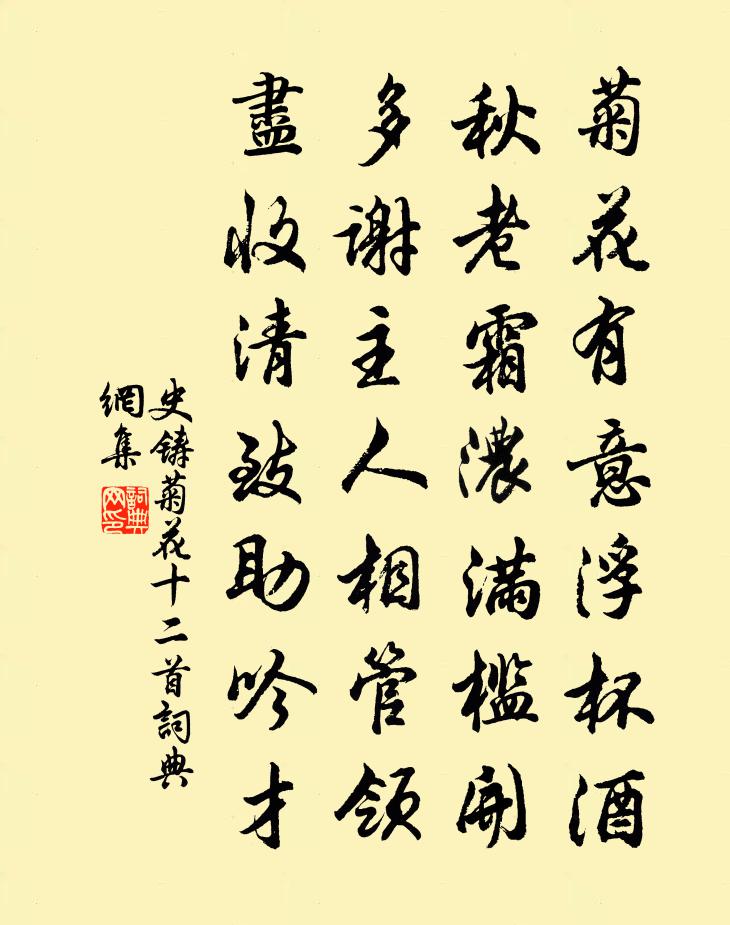 菊花有意浮杯酒
秋老霜濃滿檻開
多謝主人相管領
盡收清致助吟才
史鑄菊花十二首詞典
網集
詞典網印